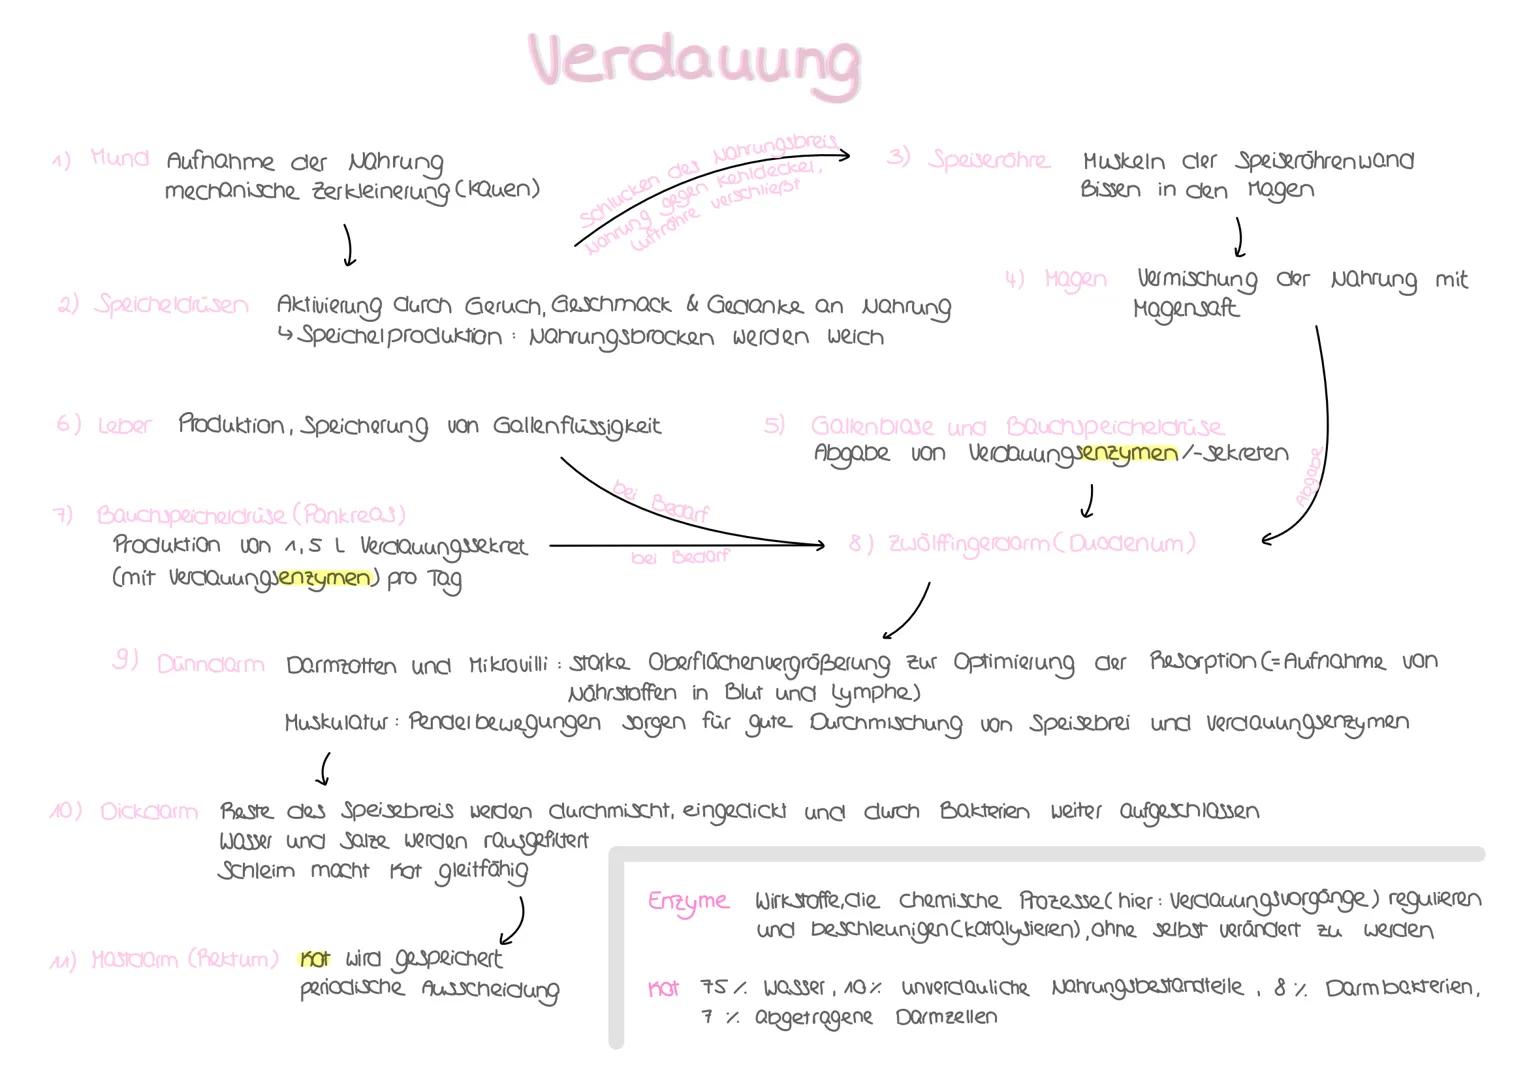 Verdauung
1) Mund Aufnahme der Nahrung
mechanische Zerkleinerung (Kauen)
Schlucken des Nahrungsbreis,
Nahrung gegen Kehldeckel,
Luftröhre verschließt
3) Speiseröhre Muskeln der Speiseröhrenwand
Bissen in den Magen
2) Speicheldrüsen Aktivierung durch Geruch, Geschmack & Gedanke an Nahrung
↳ Speichelproduktion : Nahrungsbrocken werden weich
4) Magen Vermischung der Nahrung mit
Magensaft
Abgabe
6) Leber Produktion, Speicherung von Gallenflüssigkeit
5) Gallenblase und Bauchspeicheldrüse
Abgabe von Verdauungsenzymen /-sekreten
bei Bedarf
7) Bauchspeicheldrüse (Pankreas)
Produktion von 1,5 L Verdauungssekret
(mit Verdauungsenzymen) pro Tag
bei Bedarf
8) Zwölffingerdarm (Duodenum)
9) Dünndarm Darmzotten und Mikrovilli : starke Oberflächenvergrößerung zur Optimierung der Resorption (= Aufnahme von
Nährstoffen in Blut und Lymphe)
Muskulatur : Pendelbewegungen sorgen für gute Durchmischung von Speisebrei und Verdauungsenzymen
10) Dickdarm Reste des Speisebreis werden durchmischt, eingedickt und durch Bakterien weiter aufgeschlossen
Wasser und Salze werden rausgefiltert
Schleim macht Kot gleitfähig
11) Mastdarm (Rektum) Kot wird gespeichert
periodische Ausscheidung
Enzyme Wirkstoffe, die chemische Prozesse (hier : Verdauungsvorgänge) regulieren
und beschleunigen (katalysieren), ohne selbst verändert zu werden
Kot 75 % Wasser, 10 % unverdauliche Nahrungsbestandteile, 8 % Darmbakterien,
7 % abgetragene Darmzellen